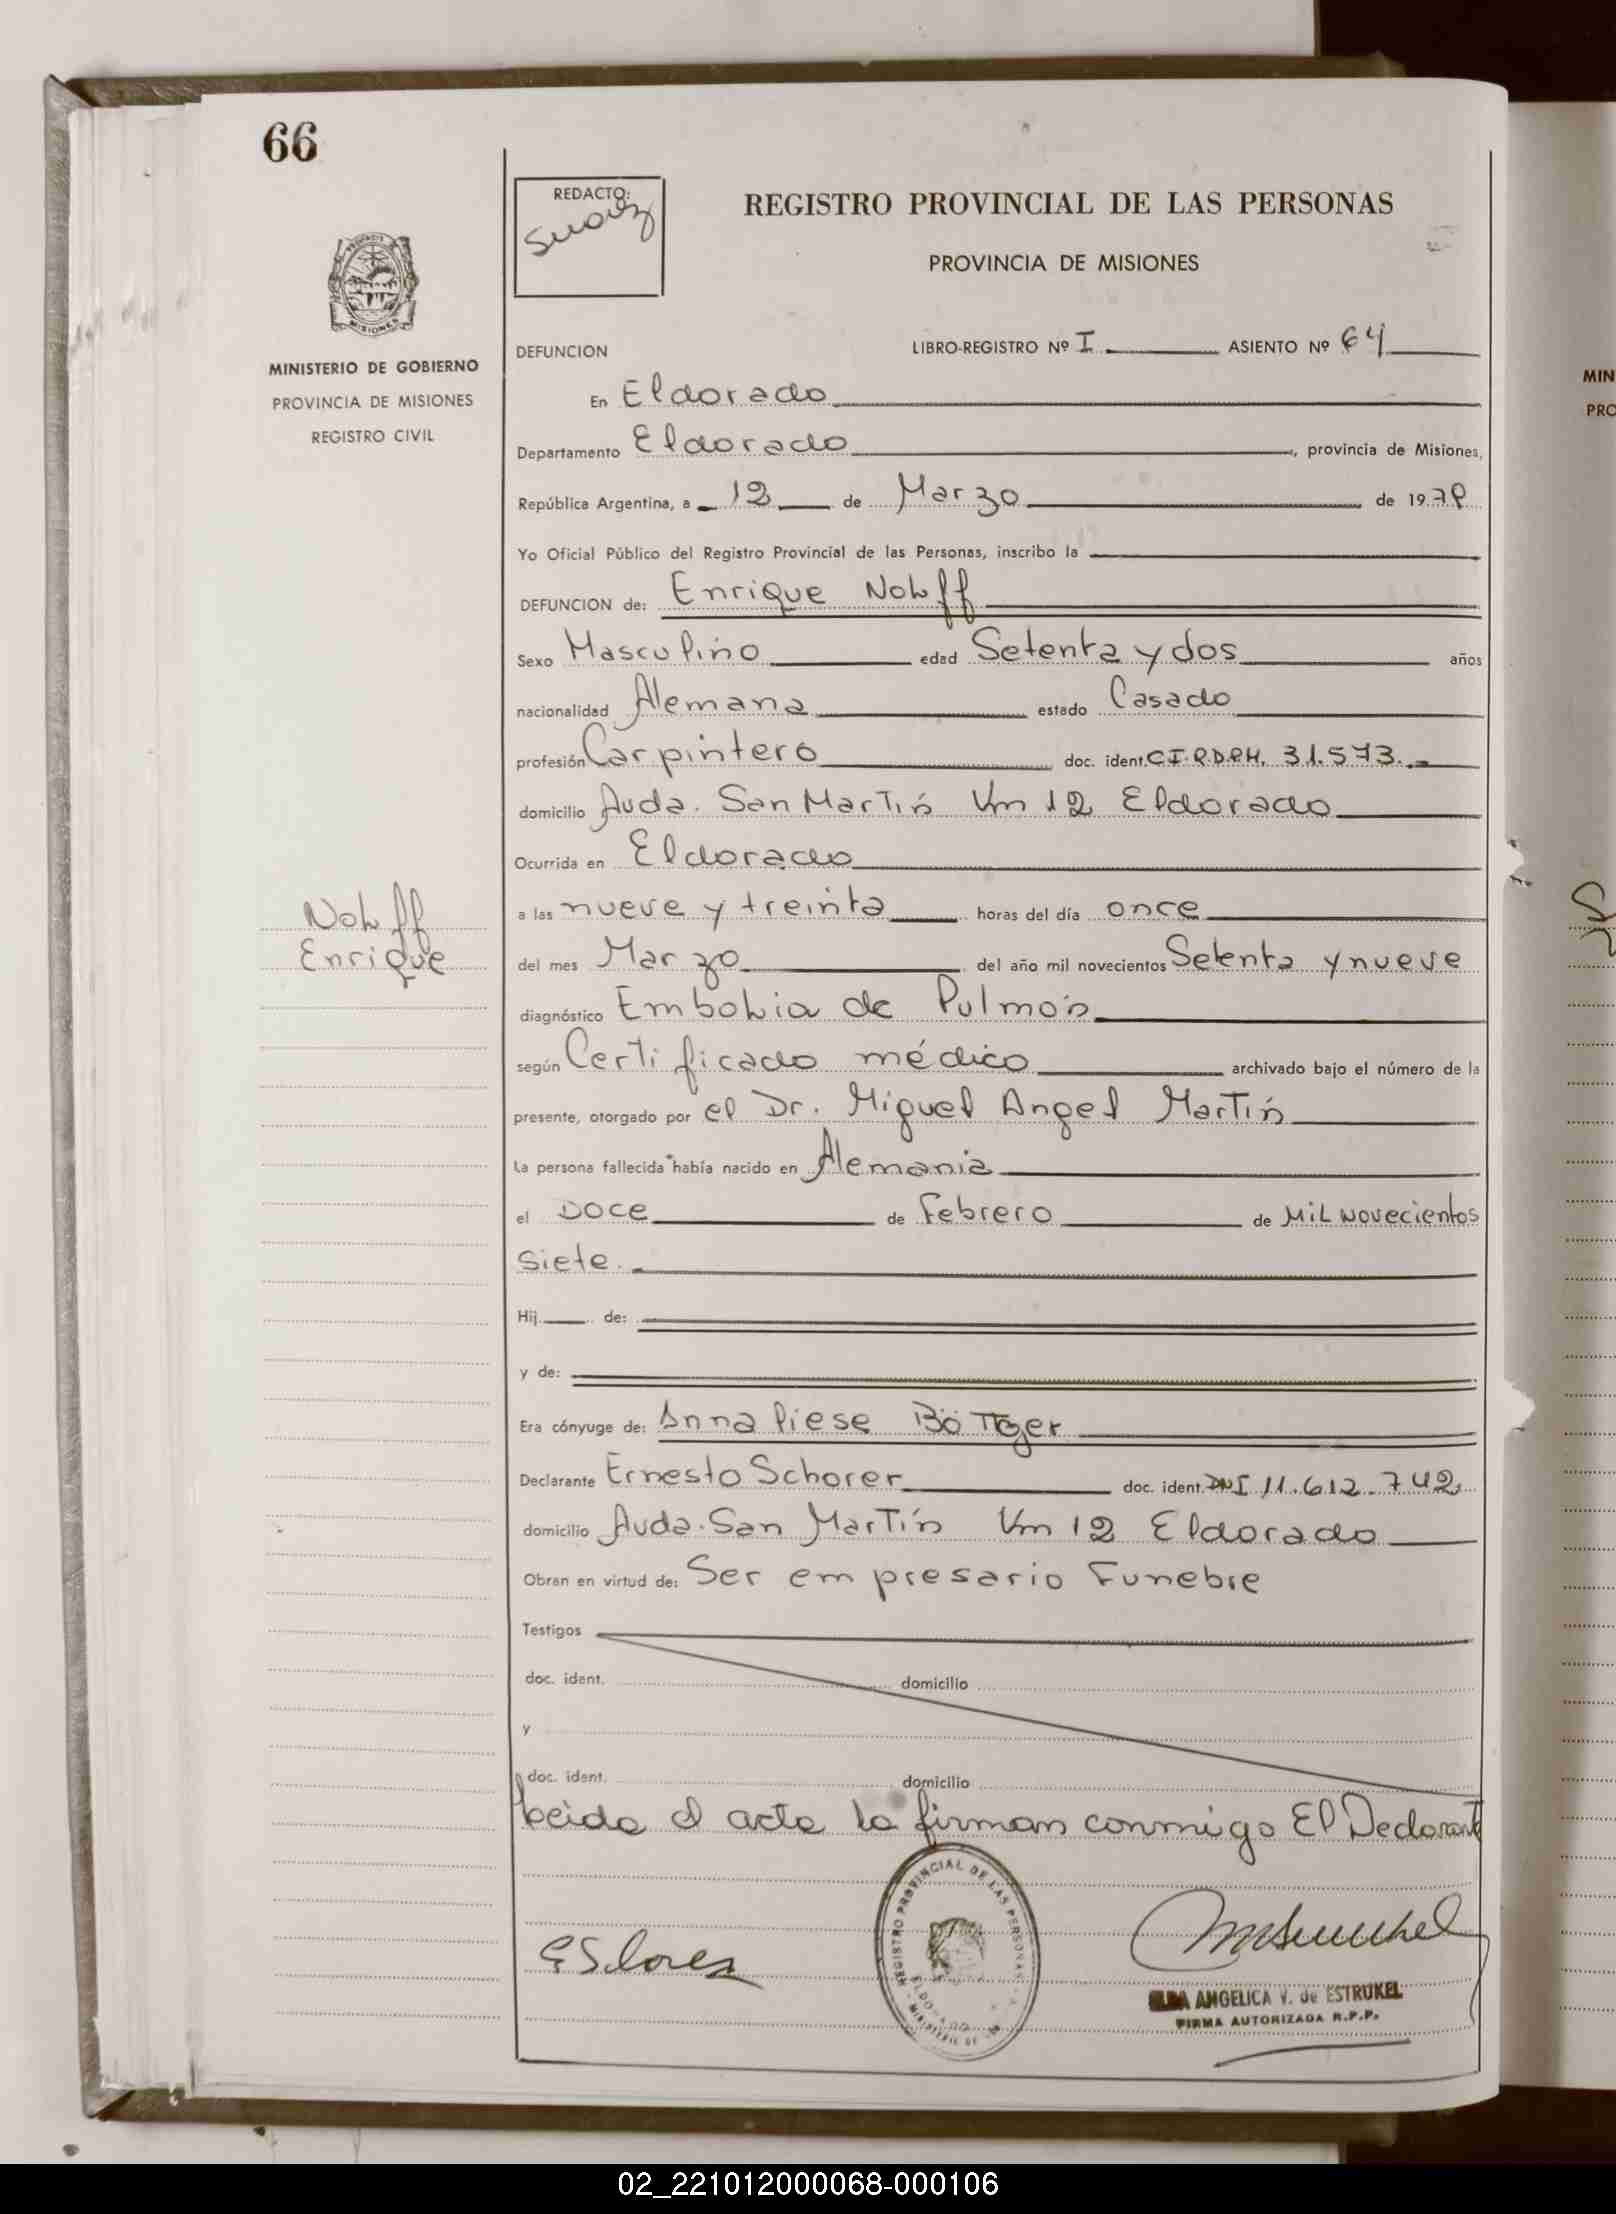 66
REDACTO:
Suarez
REGISTRO PROVINCIAL DE LAS PERSONAS
PROVINCIA DE MISIONES
MISIONES
MINISTERIO DE GOBIERNO
PROVINCIA DE MISIONES
REGISTRO CIVIL
DEFUNCION LIBRO-REGISTRO Nº I ASIENTO Nº 64
En Eldorado
Departamento Eldorado, provincia de Misiones,
República Argentina, a 12 de Marzo de 1979
Yo Oficial Público del Registro Provincial de las Personas, inscribo la
DEFUNCION de: Enrique Nolff
Sexo Masculino edad Setenta y dos años
nacionalidad Alemana estado Casado
profesión Carpintero doc. ident. 31.573.
domicilio Avda. San Martín Km 12 Eldorado
Ocurrida en Eldorado
Nolff
Enrique
a las nueve y treinta horas del día once
del mes Marzo del año mil novecientos Setenta y nueve
diagnóstico Embolia de Pulmón
según Certificado médico archivado bajo el número de la
presente, otorgado por el Dr. Miguel Angel Martín
La persona fallecida había nacido en Alemania
el Doce de Febrero de Mil novecientos
siete.
Hij de:
y de:
Era cónyuge de: Annaliese Böttger
Declarante Ernesto Schorer doc. ident. DNI 11.612.742
domicilio Avda. San Martín Km 12 Eldorado
Obran en virtud de: Ser empresario Funebre
Testigos
doc. ident. domicilio
y
doc. ident. domicilio
Leida el acta la firman conmigo El Declarante
REGISTRO PROVINCIAL DE LAS PERSONAS
ANGELICA V. de ESTRUKEL
FIRMA AUTORIZADA R.P.P.
MIN
PRO
02_221012000068-000106